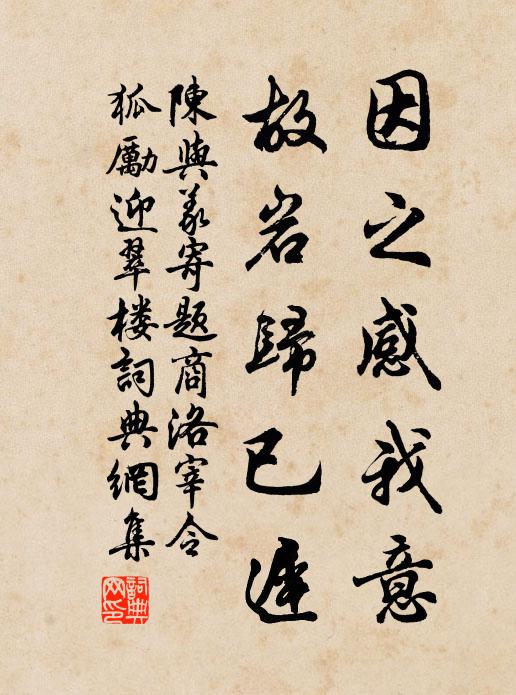 因之感我意
故岩歸已遲
陳與義寄題商洛宰令
狐勵迎翠楼詞典網集
詞典網印